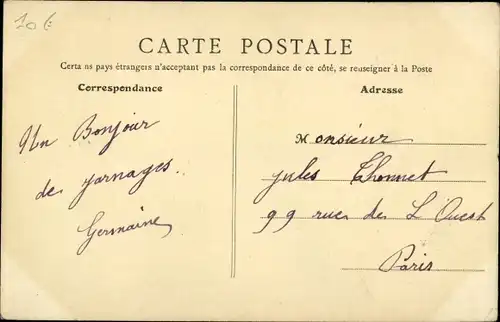 20 €
CARTE POSTALE
Certains pays étrangers n'acceptant pas la correspondance de ce côté, se renseigner à la Poste
Correspondance
Adresse
Un Bonjour
de Jarnages.
Germaine
Monsieur
Jules Thonnet
99 rue de L'Ouest
Paris